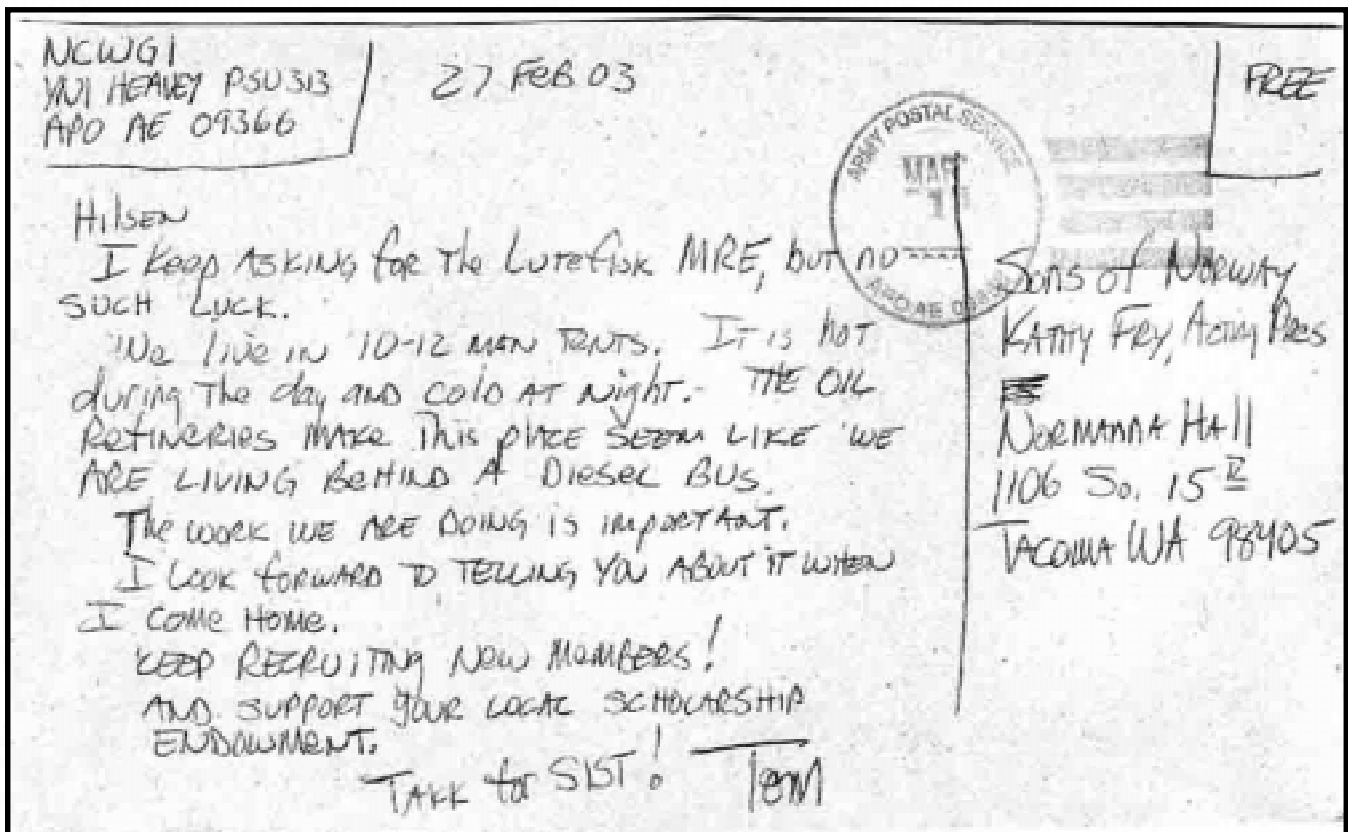 NCWG1
YN1 HEAVEY PSU 313
APO AE 09366
27 FEB 03
FREE
ARMY POSTAL SERVICE
MAR
1
APO AE
Hilsen
I Keep ASKING for The Lutefisk MRE, but no
SUCH LUCK.
We live in 10-12 MAN TENTS. IT is hot
during The day AND COLD AT Night. THE OIL
REFINERIES MAKE This place SEEM LIKE WE
ARE LIVING BEHIND A Diesel BUS.
The work WE ARE DOING is IMPORTANT.
I LOOK forward TO TELLING YOU ABOUT IT WHEN
I COME HOME.
KEEP RECRUITING NEW MEMBERS!
AND SUPPORT YOUR LOCAL SCHOLARSHIP
ENDOWMENT.
TAKK for SIST! TOM
Sons of Norway
KATHY FRY, Acting Pres
NORMANNA HAll
1106 So. 15th
TACOMA WA 98405